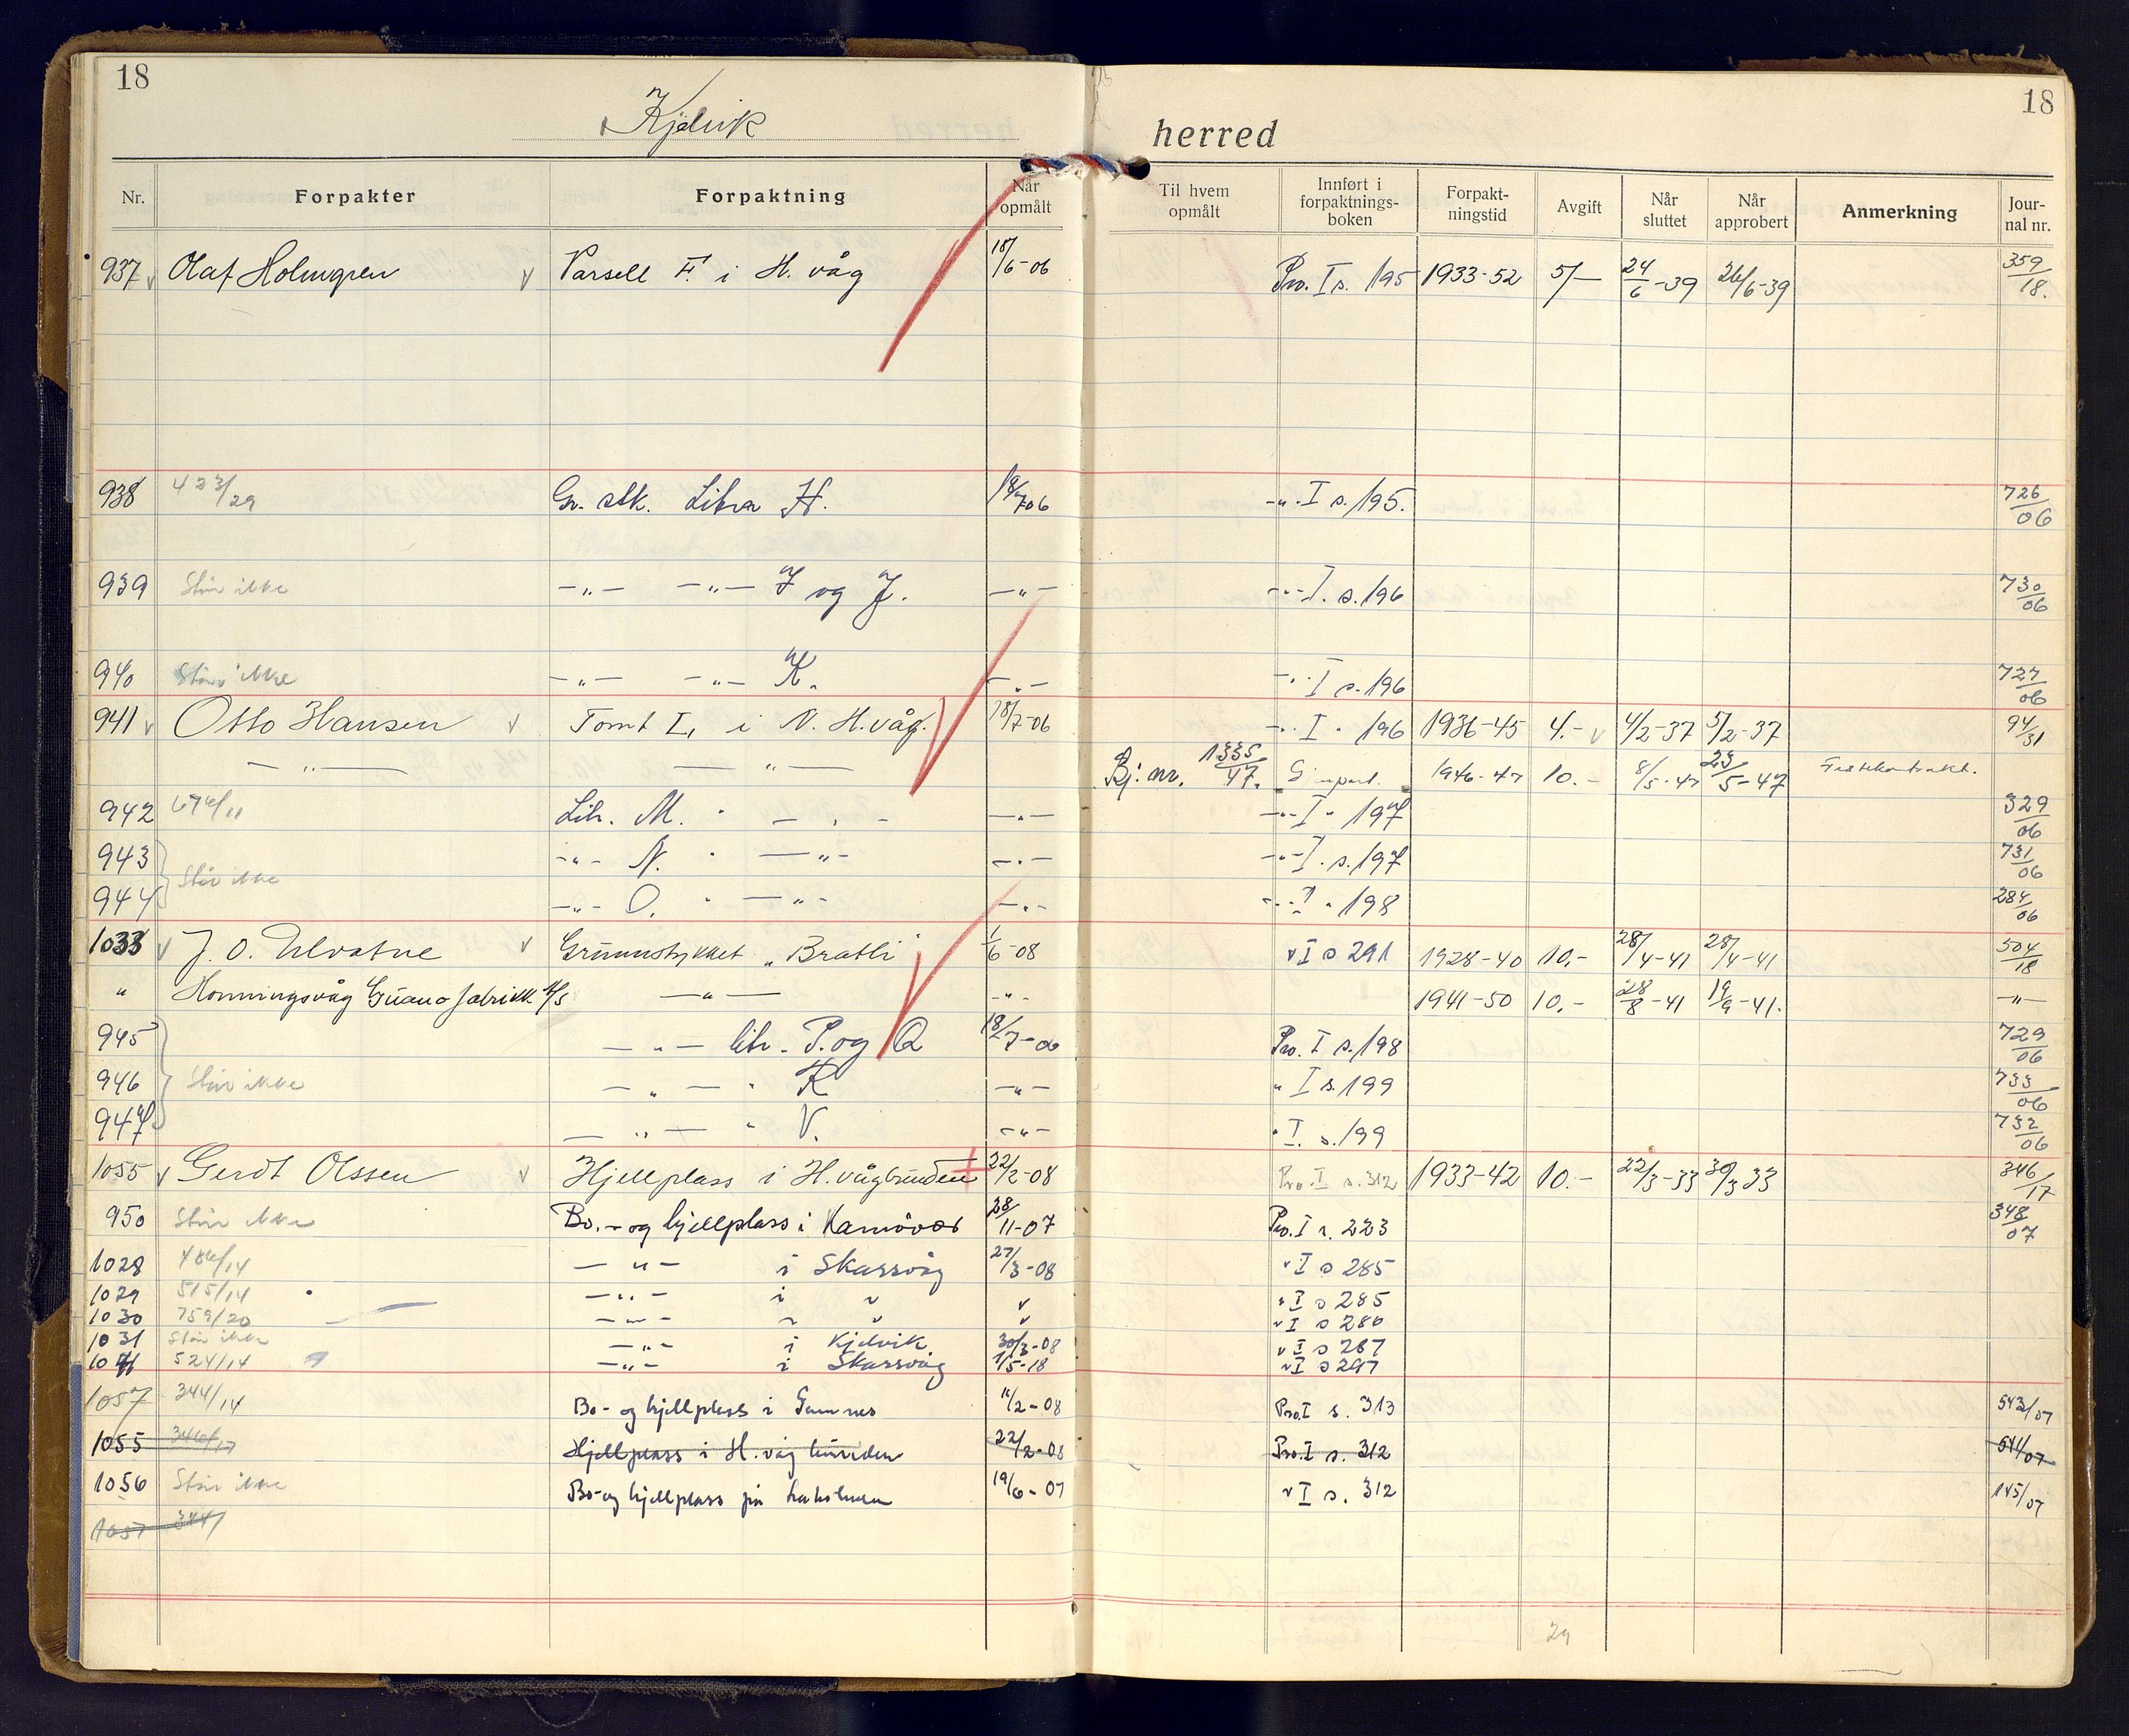 18 18
Kjelvik herred
Nr. Forpakter Forpaktning Når opmålt Til hvem opmålt Innført i forpaktnings-boken Forpakt-ningstid Avgift Når sluttet Når approbert Anmerkning Jour-nal nr.
937 Olaf Holmgren Parsell F. i H. våg 18/6-06 Pro. I s. 195 1933-52 5/— 24/6-39 26/6-39 359/18.
938 423/29 Gr. stk. Litra H. 18/7 06 -"- I s. 195. 726/06
939 Står ikke —"— —"— I og J. —"— -"- I. s. 196 730/06
940 Står ikke —"— —"— K. —"— -"- I s. 196 727/06
941 Otto Hansen Tomt L, i N. H.våg. 18/7-06 -"- I " 196 1936-45 4.- 4/2-37 5/2-37 94/31
—"— —"— Bj. nr. 1335/47. 1946-47 10.- 8/5-47 23/5-47 Festekontrakt.
942 674/11 Litr. M. " —"— —"— -"- I " 197 329/06
943 -"- N. " —"— —"— -"- I. s. 197 731/06
Står ikke
944 -"- O. " —"— —"— -"- I " 198 284/06
1033 J. O. Ulvatne Grunnstykket "Bratli" 1/6-08 " I s 291 1928-40 10,- 28/4-41 28/4-41 504/18
" Honningsvåg Guano fabrikk A/S —"— -"- 1941-50 10.- 28/8-41 19/9-41. —"—
945 —"— litr. P. og Q 18/7-06 Pro. I s. 198 729/06
946 Står ikke —"— " R —"— " I s. 199 733/06
947 —"— " V. —"— " I. s. 199 732/06
1055 Gerdt Olssen Hjellplass i H.vågbunden 22/2-08 Pro. I s. 312 1933-42 10.- 22/3-33 30/3 33 346/17
950 Står ikke Bo.- og hjellplass i Kamøver 28/11-07 Pro. I s. 223 348/07
1028 486/14 —"— i Skarsvåg 27/3-08 " I s 285
1029 515/14 —"— i " " " I s 285
1030 759/20 —"— " " " " I s 286
1031 Står ikke —"— i Kjelvik 30/3-08 " I s 287
1041 524/14 —"— i Skarsvåg 1/5-18 " I s 297
1057 344/14 Bo- og hjellplass i Gamnes 11/2-08 Pro. I s. 313 543/07
1055 346/17 Hjellplass i H.våg bunden 22/2-08 Pro. I s. 312 541/07
1056 Står ikke Bo- og hjellplass på 19/6-07 " I s. 312 145/07
1057 344/
29